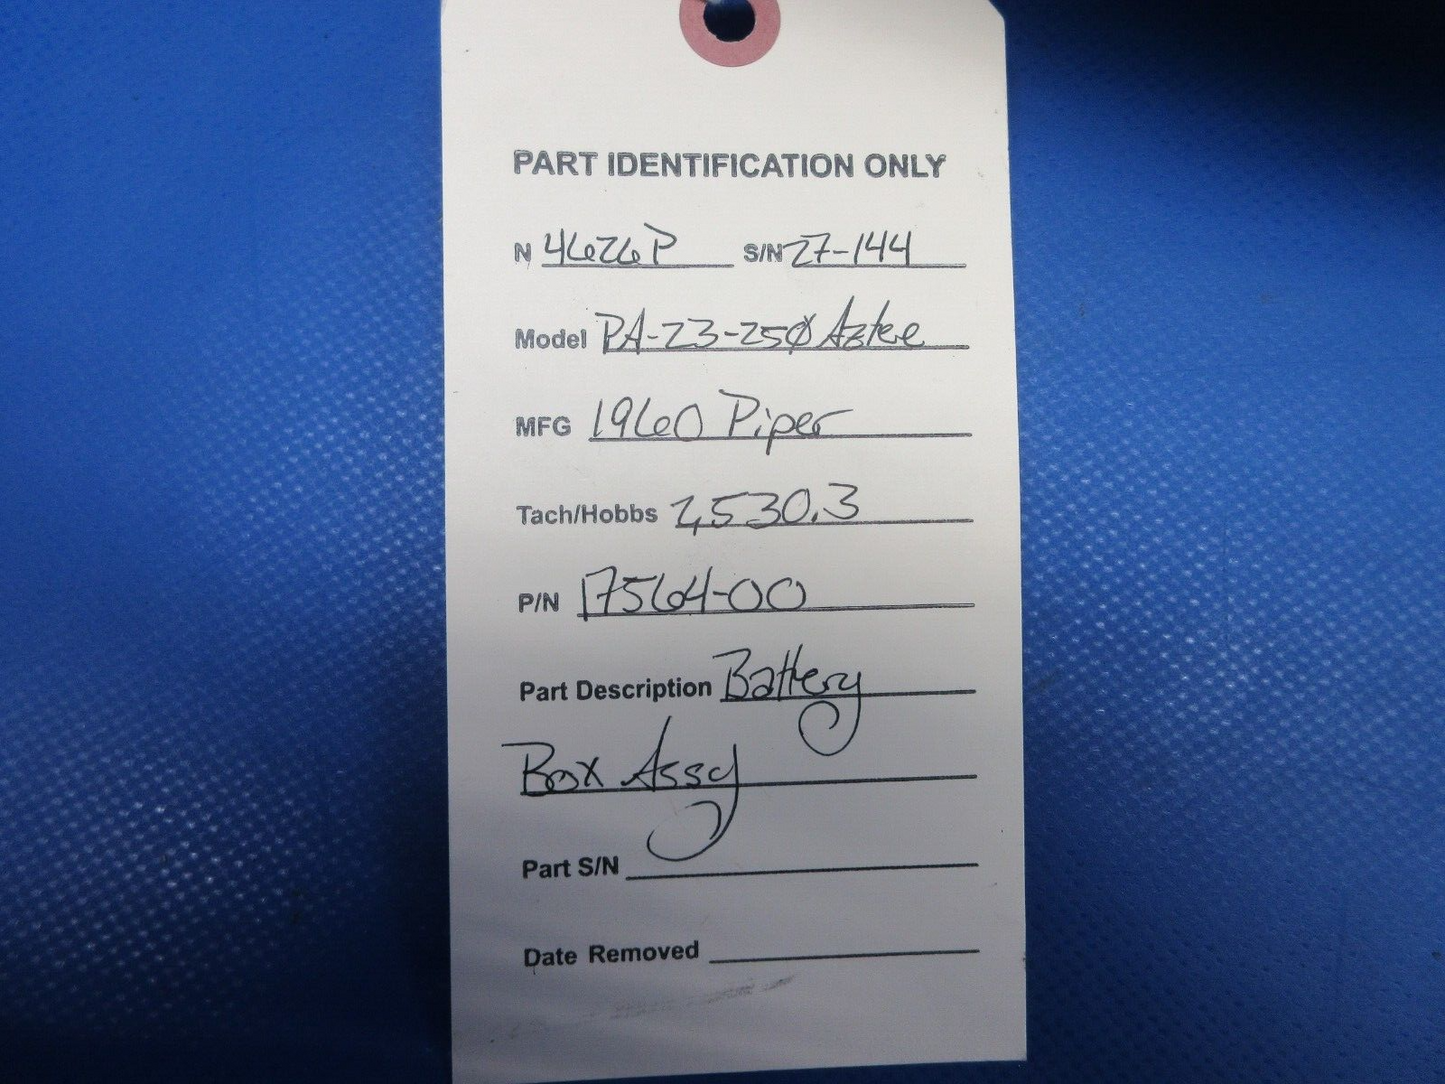 PART IDENTIFICATION ONLY
N 4626P S/N 27-144
Model PA-23-250 Aztec
MFG 1960 Piper
Tach/Hobbs 2,530.3
P/N 17564-00
Part Description Battery
Box Assy
Part S/N
Date Removed